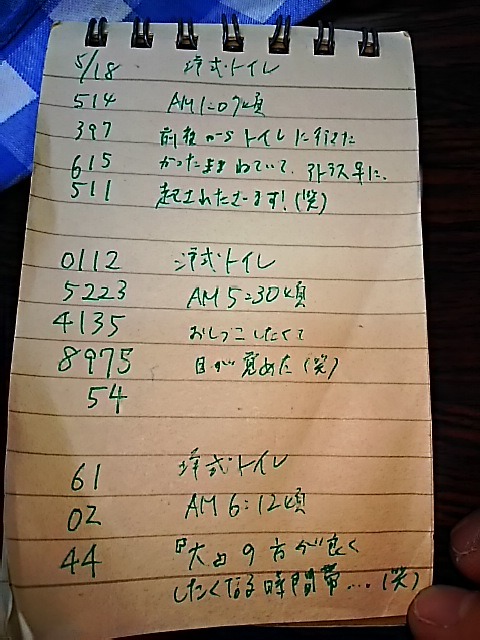 5/18 洋式トイレ
514 AM1:07頃
397 前後からトイレに行きた
615 かったままねていて、
511 起こされたさーます!(笑)
0112 洋式トイレ
5223 AM5:30頃
4135 おしっこしたくて
8975 目が覚めた(笑)
54
61 洋式トイレ
02 AM6:12頃
44 の方が良く
したくなる時間帯…(笑)